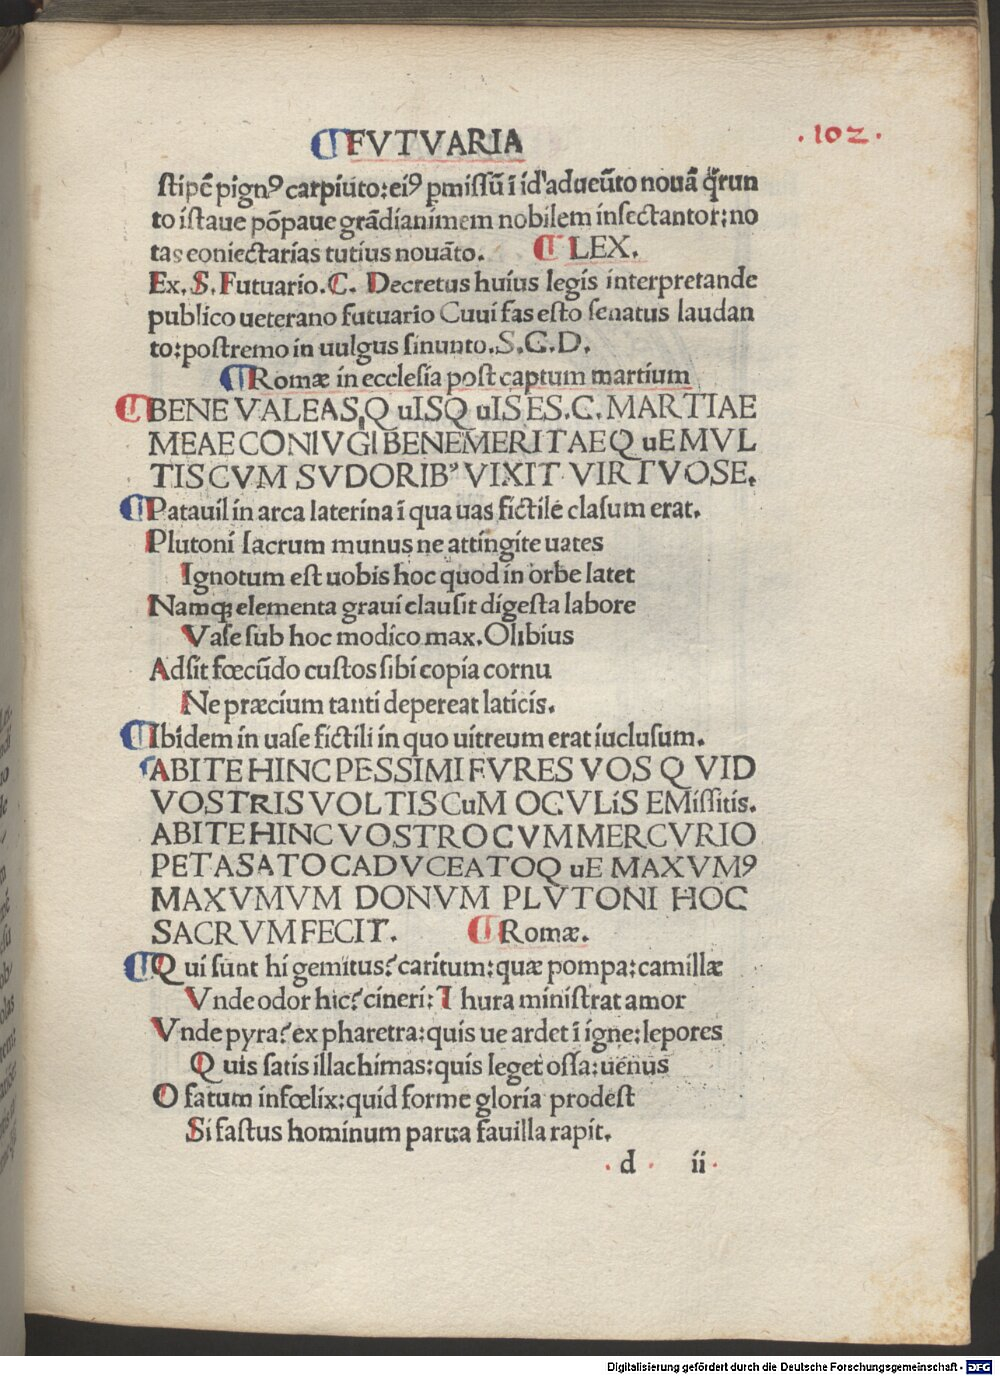 FVTVARIA
.102.
stipē pignꝰ carpiuto: eiꝰ pmissū ī id'adueūto nouā q̄run
to istaue pōpaue grādianimem nobilem insectantor; no
tas coniectarias tutius nouāto. LEX.
Ex. S. Futuario. C. Decretus huius legis interpretande
publico ueterano futuario Cuui fas esto senatus laudan
to: postremo in uulgus sinunto. S. C. D.
Romæ in ecclesia post captum martium
BENE VALEAS, Q uISQ uIS ES. C. MARTIAE
MEAE CONIVGI BENEMERITAE Q uE MVL
TIS CVM SVDORIBꝰ VIXIT VIRTVOSE.
Patauii in arca laterina ī qua uas fictile clasum erat.
Plutoni sacrum munus ne attingite uates
Ignotum est uobis hoc quod in orbe latet
Namq; elementa graui clausit digesta labore
Vase sub hoc modico max. Olibius
Adsit fœcūdo custos sibi copia cornu
Ne præcium tanti depereat laticis.
Ibidem in uase fictili in quo uitreum erat iuclusum.
ABITE HINC PESSIMI FVRES VOS Q VID
VOSTRIS VOLTIS CuM OCVLiS EMissitis.
ABITE HINC VOSTRO CVM MERCVRIO
PETASATO CADVCEATOQ uE MAXVMꝰ
MAXVMVM DONVM PLVTONI HOC
SACRVM FECIT. Romæ.
Q ui sunt hi gemitus? caritum: quæ pompa: camillæ
Vnde odor hic? cineri: T hura ministrat amor
Vnde pyra? ex pharetra: quis ue ardet ī igne: lepores
Q uis satis illachimas: quis leget ossa: uenus
O fatum infœlix: quid forme gloria prodest
Si fastus hominum parua fauilla rapit.
. d . ii .
Digitalisierung gefördert durch die Deutsche Forschungsgemeinschaft - DFG